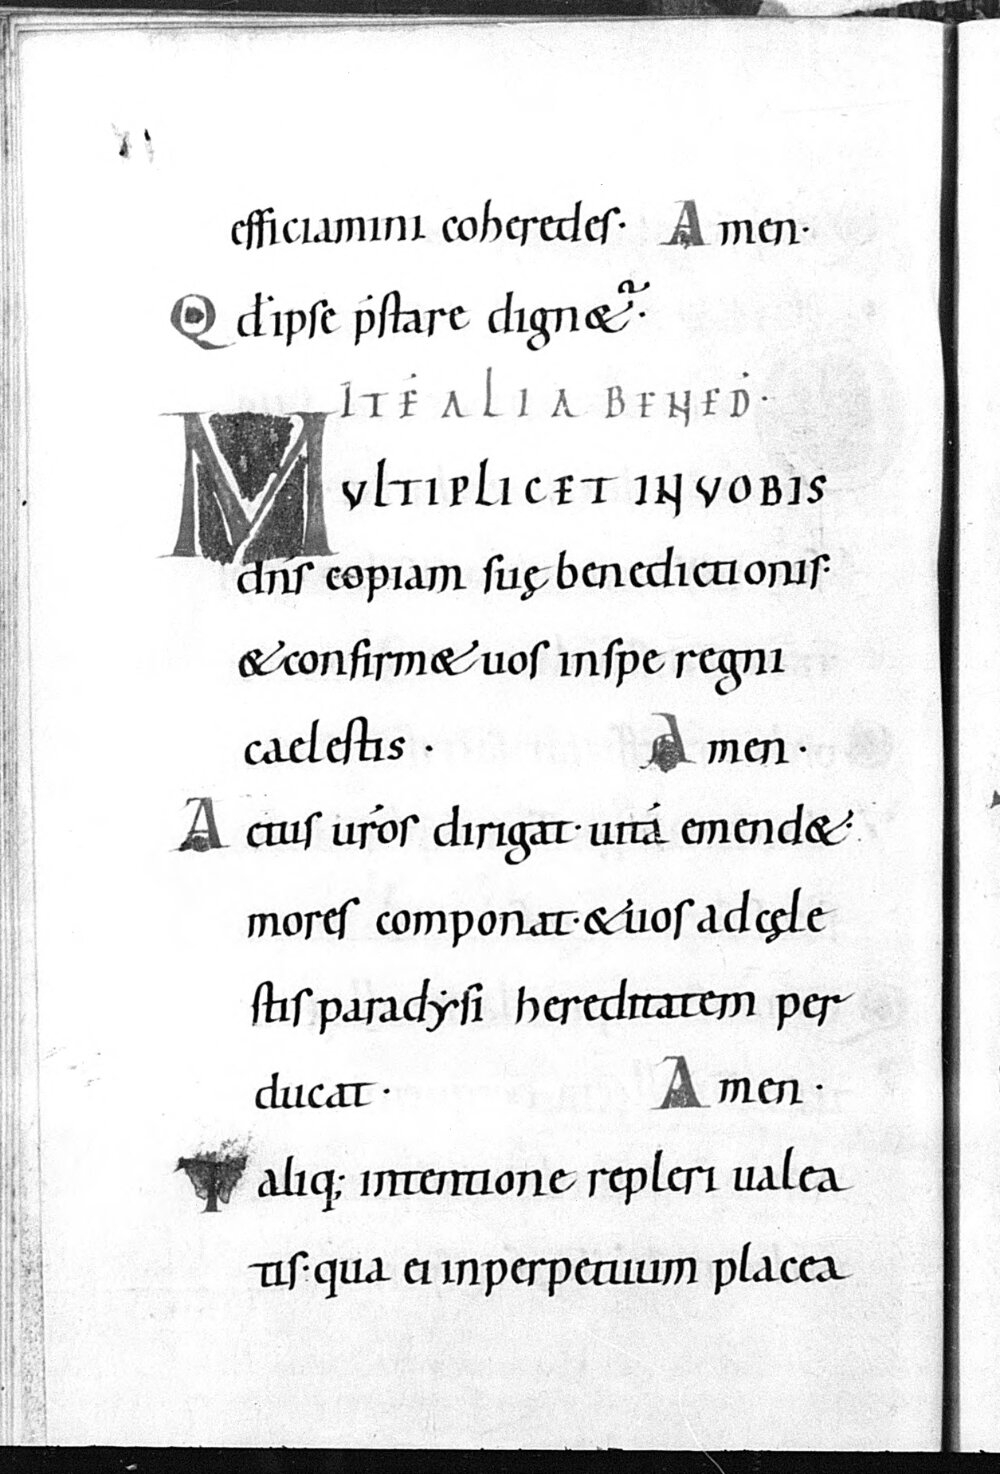 efficiamini coheredes· Amen·
Qđ ipse p̓stare dign&ᷓ·
ITĒ ALIA BENED̄·
MVLTIPLICET IN VOBIS
dn̄s copiam suę benedictionis:
& confirm& uos inspe regni
caelestis · Amen·
Actus ur̄os dirigat· uitā emend&:
mores componat· & uos ad cęle
stis paradẏsi hereditatem per
ducat· Amen·
Taliq; intentione repleri ualea
tis: qua ei inperpetuum placea